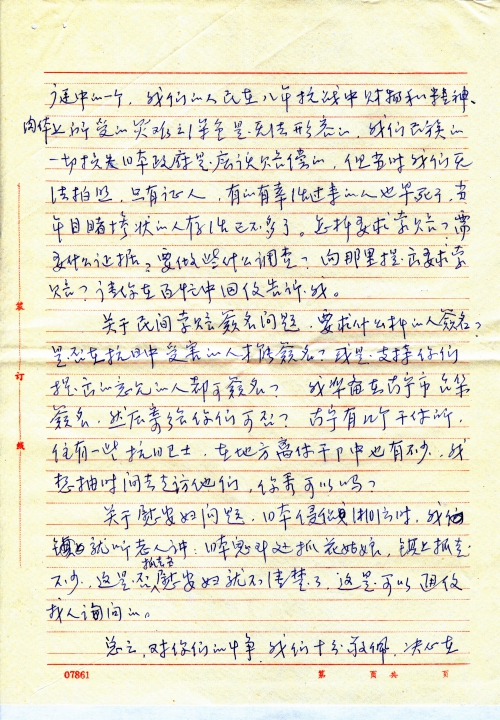 途中的一个，我们的人民在八年抗战中财物和精神、
肉体上所受的灾难之深重是无法形容的，我们民族的
一切损失日本政府是应该赔偿的，但当时我们无
法拍照，只有证人，有的有幸活过来的人也早死了，当
年目睹惨状的人存活已不多了。怎样要求索赔？需
要什么证据？要做些什么调查？向那里提出要求索
赔？请你在百忙中回信告诉我。
关于民间索赔签名问题，要求什么样的人签名？
是否在抗日中受害的人才能签名？或是支持你们
提出的意见的人都可签名？我准备在市
签名，然后寄给你们可否？有几个干休所，
住有一些抗日卫士，在地方离休干部中也有不少，我
想抽时间去走访他们，你看可以吗？
关于慰安妇问题，日本侵时，我们
镇上就听老人讲：日本鬼到处抓花姑娘，镇上抓走
不少，这是否抓去当慰安妇就不清楚了，这是可以回信
找人询问的。
总之，对你们的斗争，我们十分敬佩，决心在
07861
第 页 共 页
装
订
线